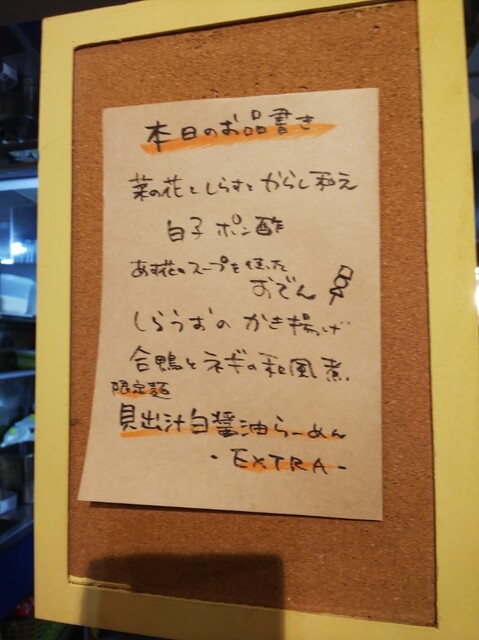 本日のお品書き
菜の花としらすとからし和え
白子ポン酢
あす花のスープを使った
おでん
しらうおのかき揚げ
合鴨とネギの和風煮
限定麺
貝出汁白醤油らーめん
-EXTRA-